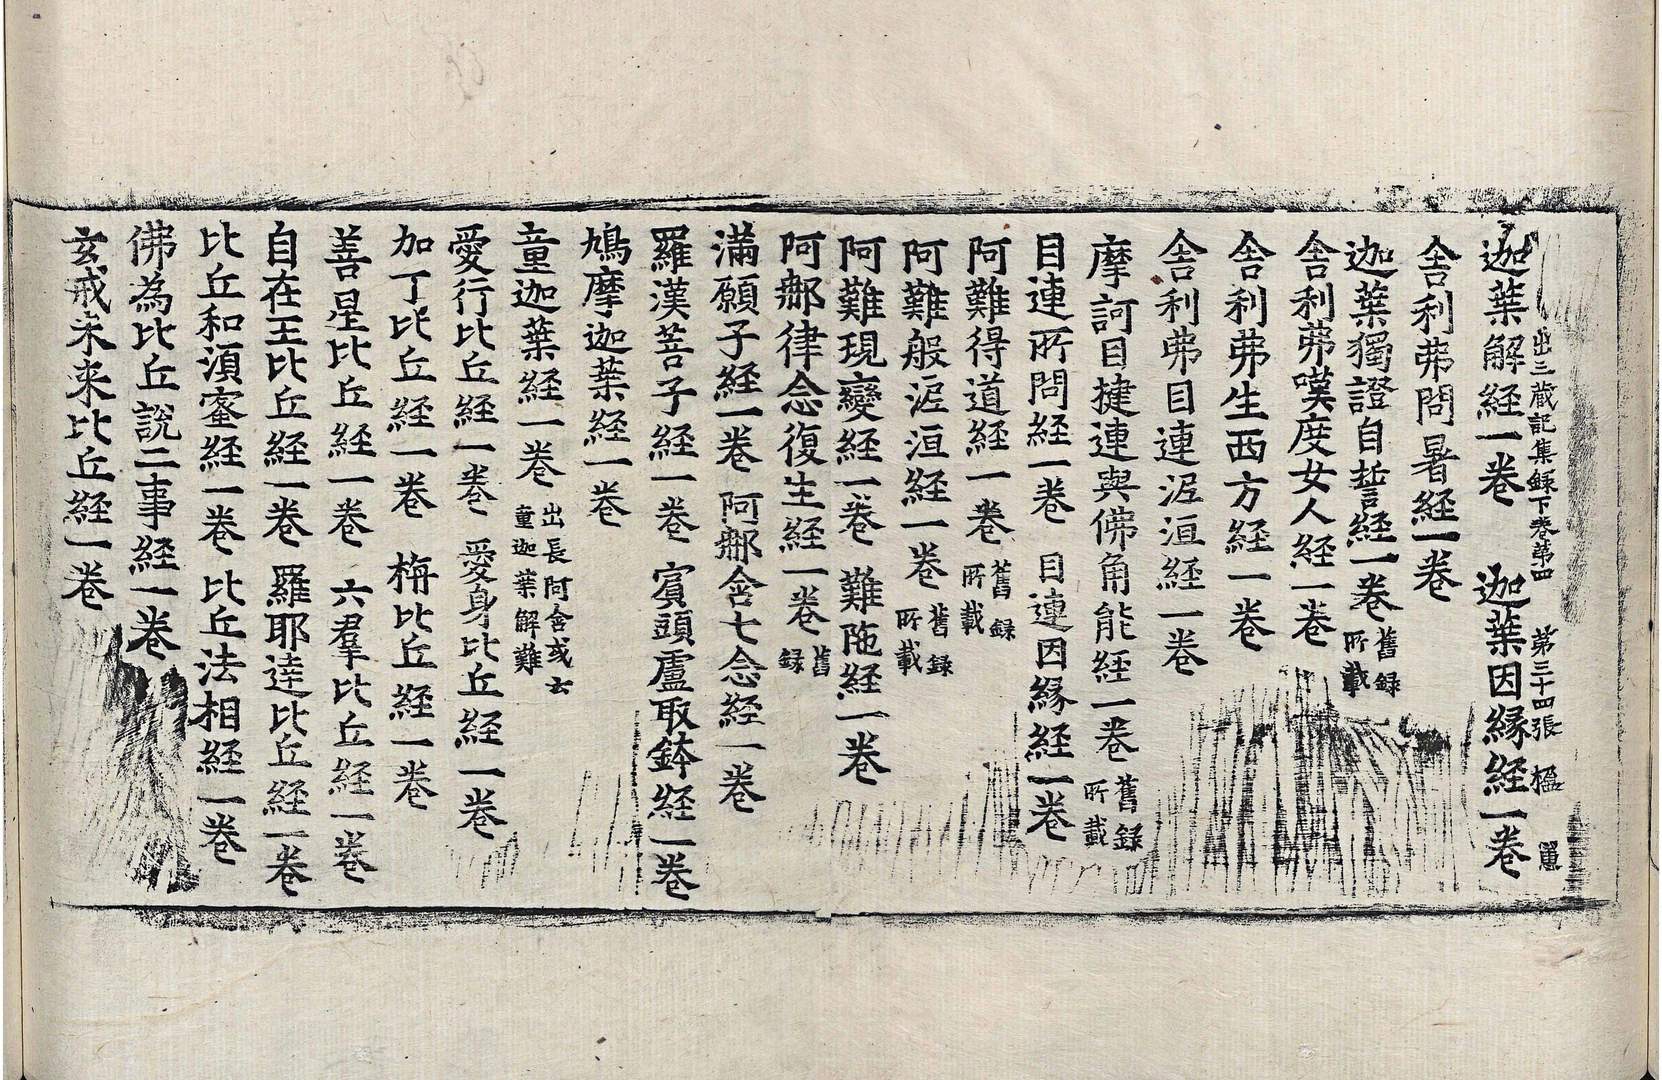 出三蔵記集録下巻第四 第三十四張 楹
迦葉解経一巻 迦葉因縁経一巻
舎利弗問暑経一巻
迦葉獨證自誓経一巻 舊録所載
舎利弗嘆度女人経一巻
舎利弗生西方経一巻
舎利弗目連泥洹経一巻
摩訶目揵連與佛角能経一巻 舊録所載
目連所問経一巻 目連因縁経一巻
阿難得道経一巻 舊録所載
阿難般泥洹経一巻 舊録所載
阿難現變経一巻 難陁経一巻
阿那律念復生経一巻 舊録
滿願子経一巻 阿那含七念経一巻
羅漢菩子経一巻 賓頭盧取鉢経一巻
鳩摩迦葉経一巻
童迦葉経一巻 出長阿含或云童迦葉解難
愛行比丘経一巻 愛身比丘経一巻
加丁比丘経一巻 栴比丘経一巻
善星比丘経一巻 六羣比丘経一巻
自在王比丘経一巻 羅耶逹比丘経一巻
比丘和湏蜜経一巻 比丘法相経一巻
佛為比丘説二事経一巻
玄戒未来比丘経一巻